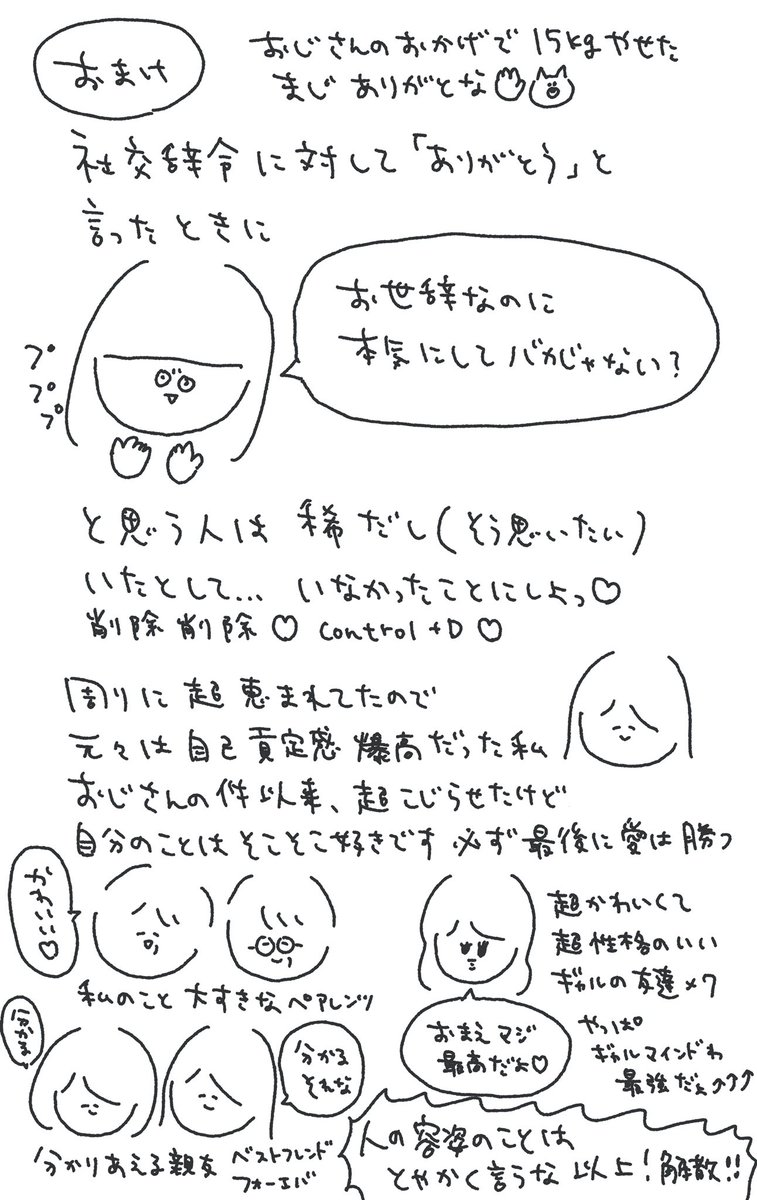 おまけ
おじさんのおかげで15kgやせた
まじ ありがとな
社交辞令に対して「ありがとう」と
言ったときに
お世辞なのに
本気にしてバカじゃない？
プ
プ
プ
と思う人は 稀だし(そう思いたい)
いたとして… いなかったことにしよっ♡
削除 削除 ♡ control+D ♡
周りに超恵まれてたので
元々は自己肯定感爆高だった私
おじさんの件以来、超こじらせたけど
自分のことはそこそこ好きです 必ず最後に愛は勝つ
かわいい♡
私のこと大すきなペアレンツ
超かわいくて
超性格のいい
ギャルの友達×7
おまえマジ
最高だよ♡
やっぱ
ギャルマインドわ
最強だょ↑↑↑
分かる
それな
分かりあえる親友 ベストフレンド
フォーエバ
人の容姿のことは
とやかく言うな 以上！解散!!